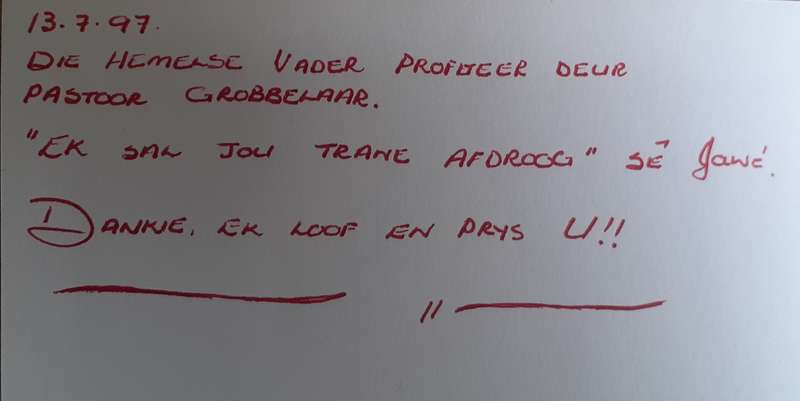 13.7.97.
DIE HEMELSE VADER PROFITEER DEUR
PASTOOR GROBBELAAR.
"EK SAL JOU TRANE AFDROOG" SÊ Jawé.
DANKIE, EK LOOF EN PRYS U!!
"